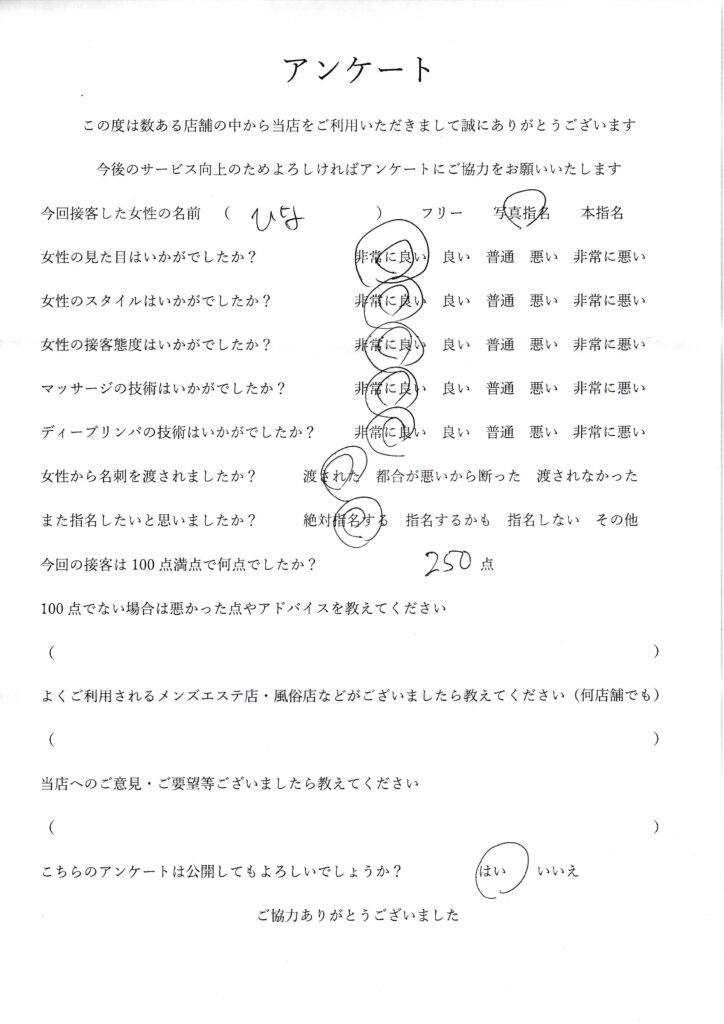 アンケート
この度は数ある店舗の中から当店をご利用いただきまして誠にありがとうございます
今後のサービス向上のためよろしければアンケートにご協力をお願いいたします
今回接客した女性の名前 ( ひな ) フリー 写真指名 本指名
女性の見た目はいかがでしたか? 非常に良い 良い 普通 悪い 非常に悪い
女性のスタイルはいかがでしたか? 非常に良い 良い 普通 悪い 非常に悪い
女性の接客態度はいかがでしたか? 非常に良い 良い 普通 悪い 非常に悪い
マッサージの技術はいかがでしたか? 非常に良い 良い 普通 悪い 非常に悪い
ディープリンパの技術はいかがでしたか? 非常に良い 良い 普通 悪い 非常に悪い
女性から名刺を渡されましたか? 渡された 都合が悪いから断った 渡されなかった
また指名したいと思いましたか? 絶対指名する 指名するかも 指名しない その他
今回の接客は100点満点で何点でしたか? 250 点
100点でない場合は悪かった点やアドバイスを教えてください
( )
よくご利用されるメンズエステ店・風俗店などがございましたら教えてください(何店舗でも)
( )
当店へのご意見・ご要望等ございましたら教えてください
( )
こちらのアンケートは公開してもよろしいでしょうか? はい いいえ
ご協力ありがとうございました